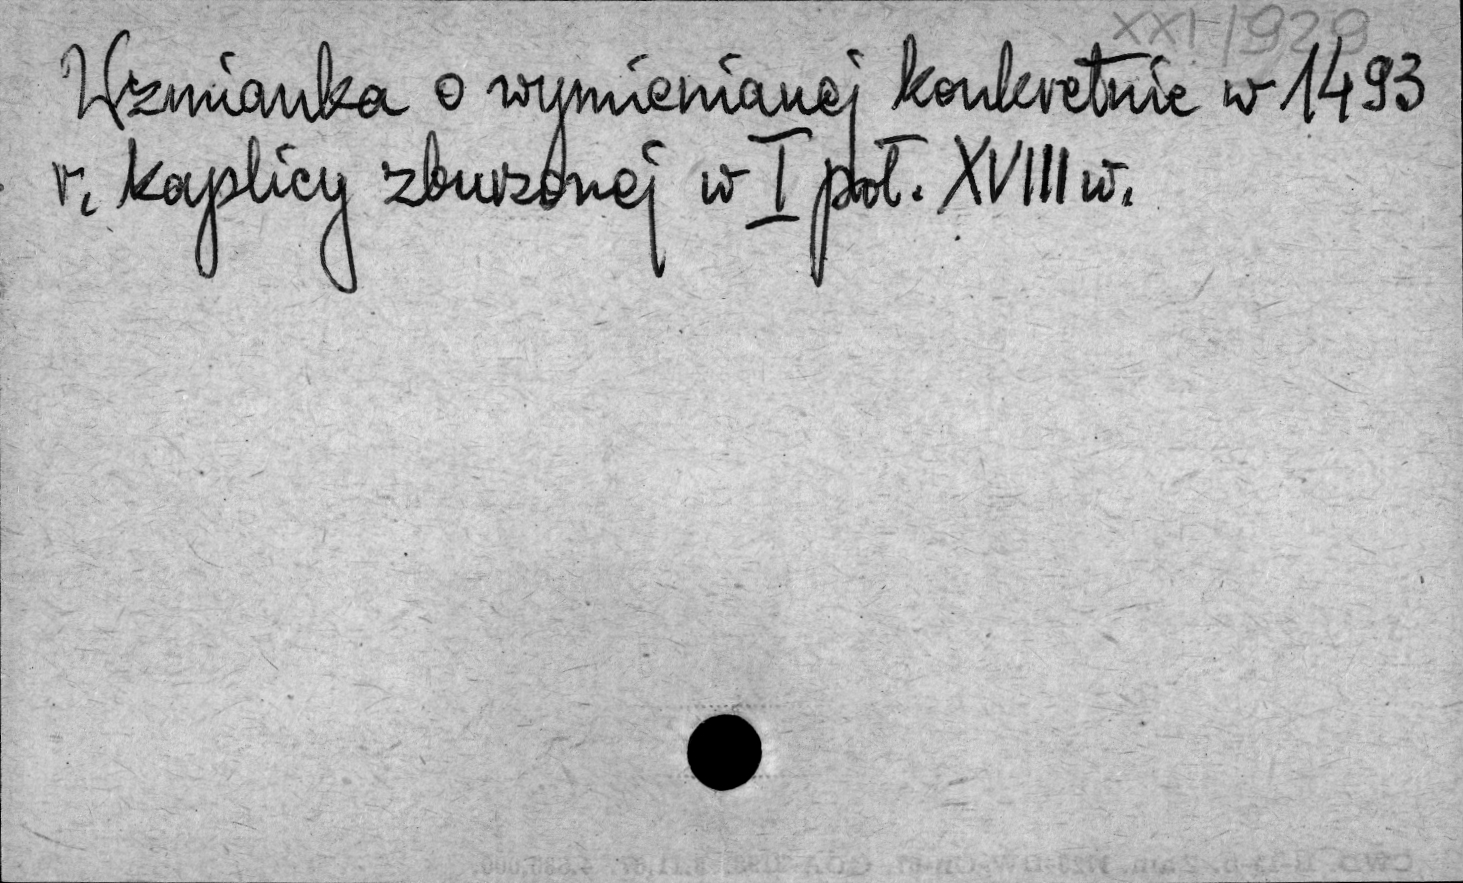 XXI/1929
Wzmianka o wymienianej konkretnie w 1493
r. kaplicy zburzonej w I poł. XVIII w.